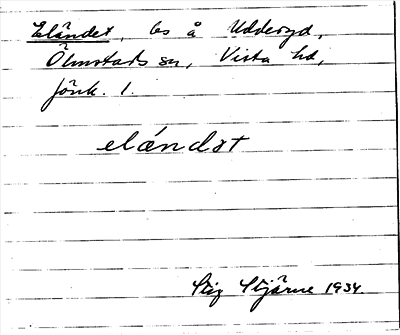 Eländet, bs å Udderyd,
Ölmstads sn, Vista hd,
Jönk. l.
elándət
Stig Stjärne 1934.